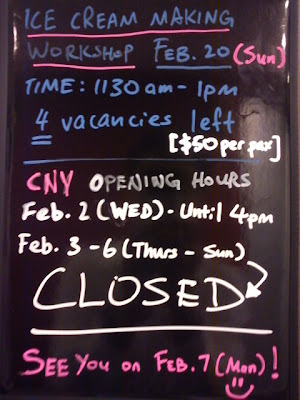 ICE CREAM MAKING
WORKSHOP FEB. 20 (Sun)
TIME: 1130 am - 1pm
4 vacancies left
[$50 per pax]
CNY OPENING HOURS
Feb. 2 (WED) - Until 4pm
Feb. 3 - 6 (Thurs - Sun)
CLOSED
SEE YOU ON FEB. 7 (Mon)!